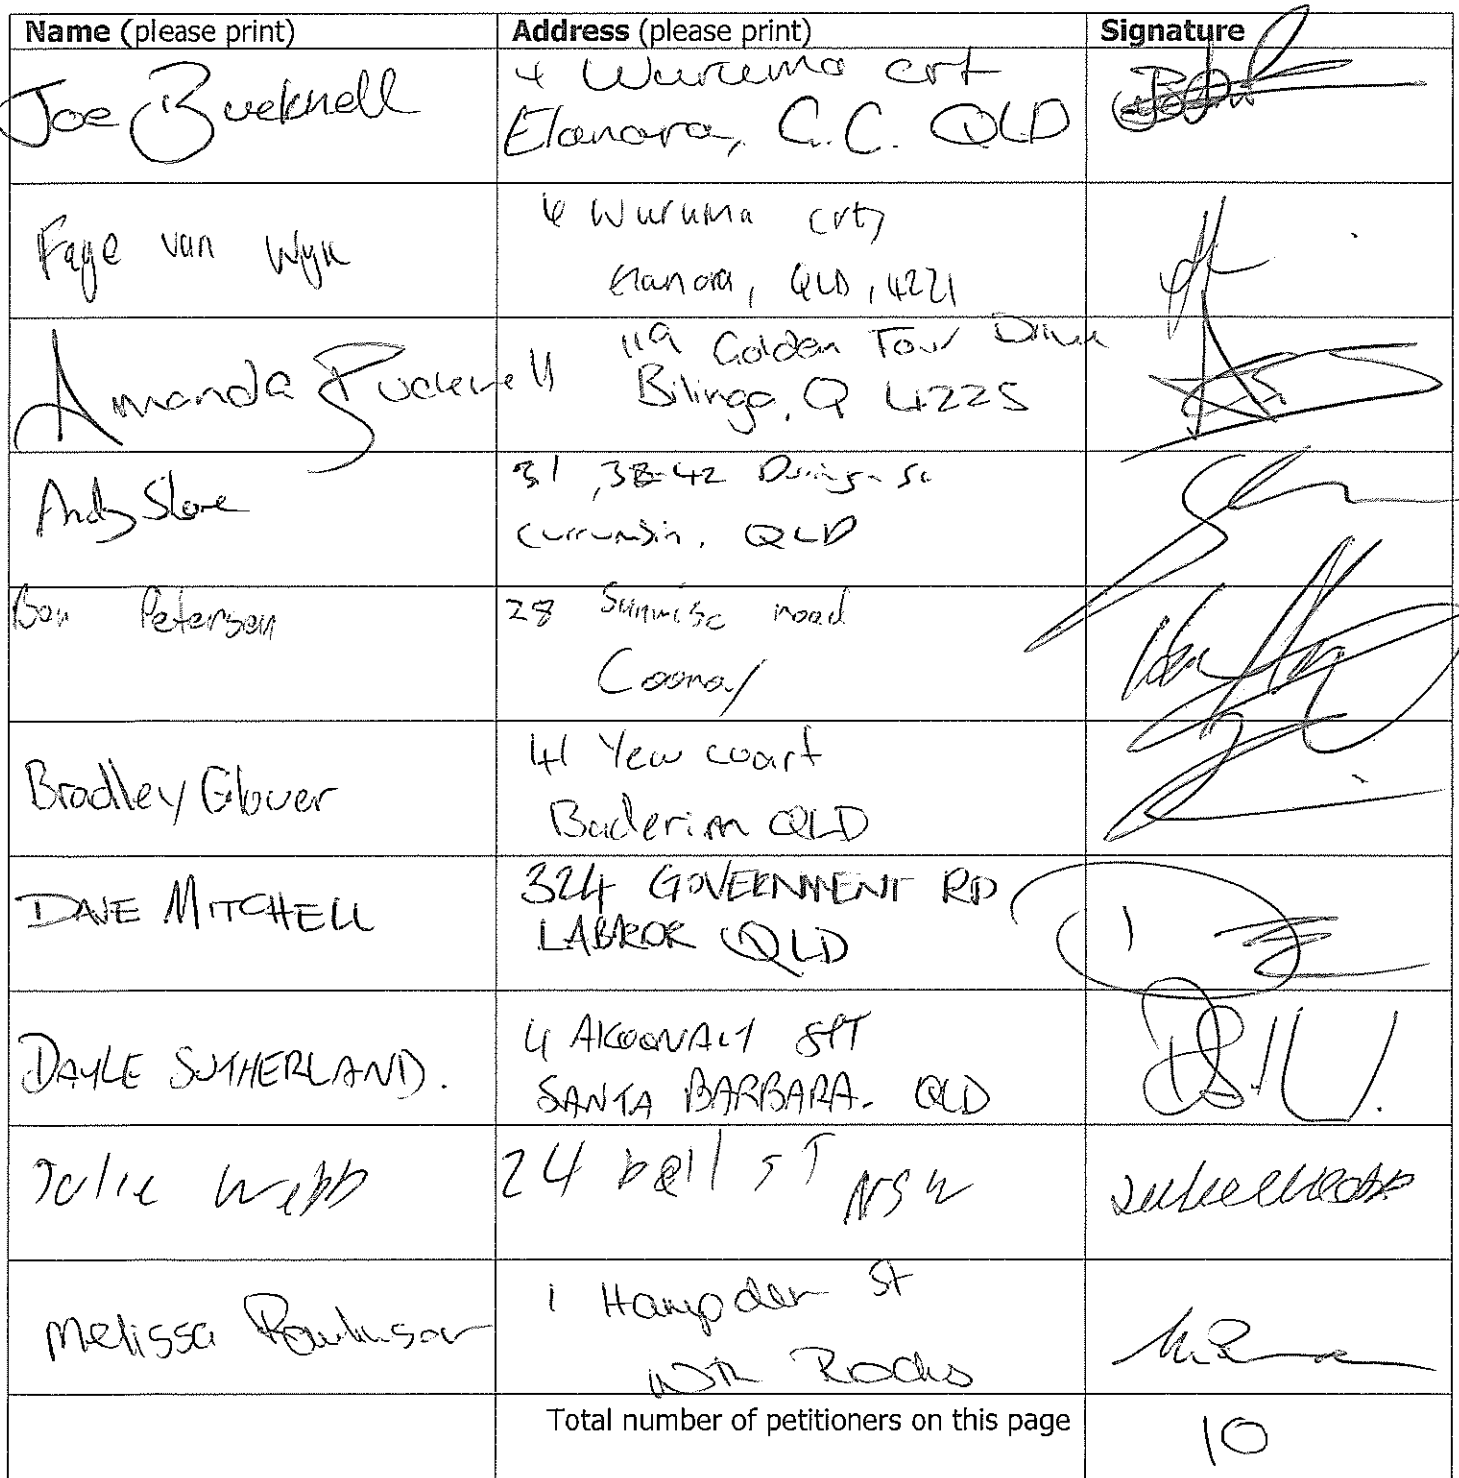 Name (please print) Address (please print) Signature
Joe Bucknell
4 Wuruma crt
Elanora, G.C. QLD
Faye van Wyk
4 Wuruma crt,
Elanora, QLD, 4221
Amanda Bucknell
119 Golden Four Drive
Bilinga, Q 4225
Andy Slove
31, 38-42 Duringan St
Currumbin, QLD
Ben Petersen
28 Sunrise road
Coomay
Bradley Glover
41 Yew court
Buderim QLD
DAVE MITCHELL
324 GOVERNMENT RD
LABROR QLD
DAYLE SUTHERLAND.
4
SANTA BARBARA. QLD
Julie Webb
24 bell ST NSW
Melissa
1 Hampden St
Nth Rocks
Total number of petitioners on this page 10